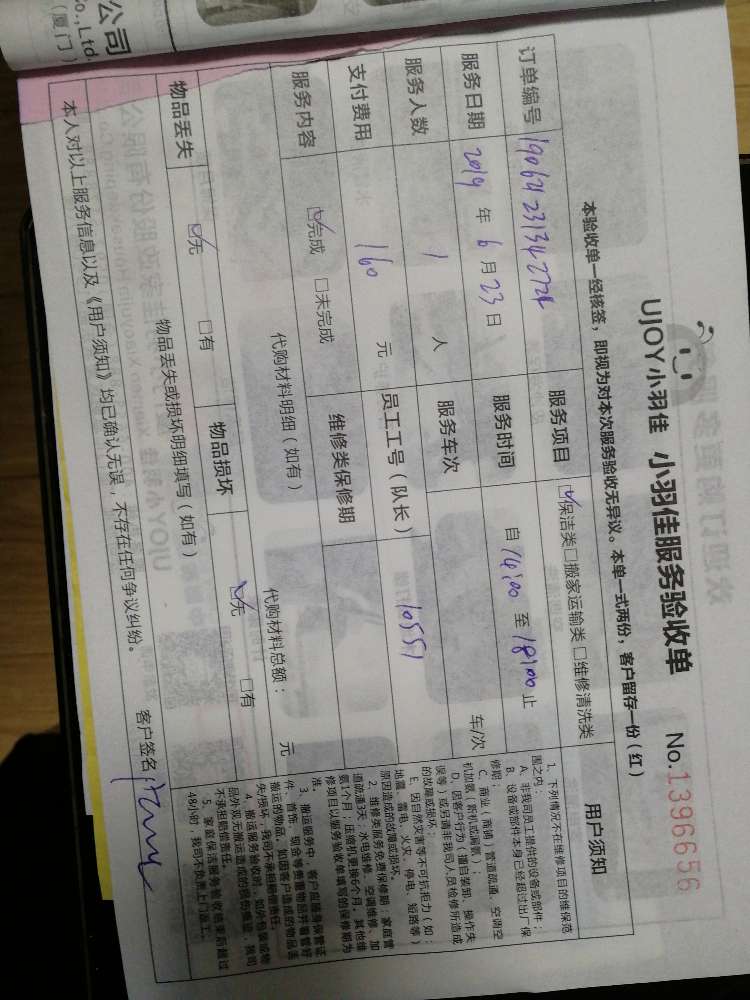 公司
Co.,Ltd.
（厦门）
UJOY小羽佳 小羽佳服务验收单 No.1396656
本验收单一经核签，即视为对本次服务验收无异议。本单一式两份，客户留存一份（红）
订单编号 服务项目 保洁类 搬家运输类 维修清洗类
服务日期 2019 年 6 月 23 日 服务时间 自 14:00 至 18:00 止
服务人数 1 人 服务车次 车/次
支付费用 160 元 员工工号（队长） 10551
服务内容 完成 未完成 维修类保修期
代购材料明细（如有） 代购材料总额： 元
物品丢失 无 有 物品损坏 无 有
物品丢失或损坏明细填写（如有）
本人对以上服务信息以及《用户须知》均已确认无误，不存在任何争议纠纷。 客户签名：
用户须知
1、下列情况不在维修项目的维保范
围之内：
A、非我司员工提供的设备或部件；
B、设备或部件本身已经超过出厂保
修期；
C、商业（商铺）管道疏通、空调空
机加氨、拆机或漏管；
D、因客户行为（擅自装卸、操作失
误等）或另请非我司人员检修所造成
的故障或损坏；
E、因自然灾害等不可抗拒力（如：
地震、雷电、火灾、停电、短路等）
原因造成的故障或损坏。
2、维修类服务免费保修期：家庭管
道疏通3天；水电维修、空调维修、加
氨1个月；压缩机更换6个月，其他维
修项目以服务验收单填写的保修期为
准。
3、搬运服务中，客户应随身保管证
件、首饰、现金等贵重物品并看管好
搬运的物品，如因客户造成的物品丢
失/损坏，我司不承担赔偿责任。
4、搬运服务验收时，如外包装或物
品外观无搬运造成的损伤痕迹，我司
不承担赔偿责任。
5、家庭保洁服务验收结束后超过
48小时，我司不负责上门返工。